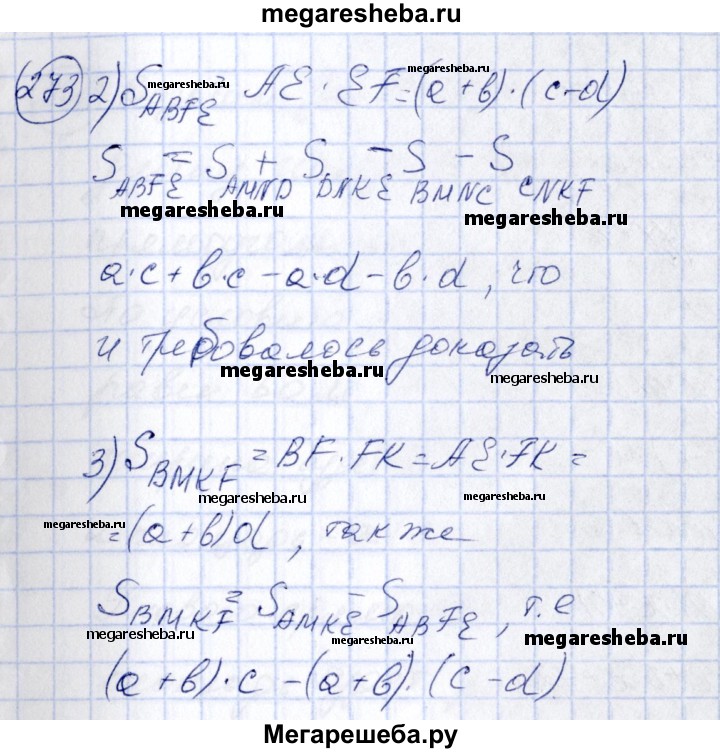 megaresheba.ru
273 2) S ABFE = AE · EF = (a + b) · (c - d)
megaresheba.ru megaresheba.ru
S ABFE = S AMND + S DNKE - S BMNC - S CNKF
megaresheba.ru megaresheba.ru
a·c + b·c - a·d - b·d, что
и требовалось доказать
megaresheba.ru megaresheba.ru
3) S BMKF = BF · FK = AE · FK =
megaresheba.ru megaresheba.ru
= (a + b)d, также
megaresheba.ru
S BMKF = S AMKE - S ABFE, т.е
megaresheba.ru megaresheba.ru megaresheba.ru
(a + b)·c - (a + b)·(c - d)
Мегарешеба.ру